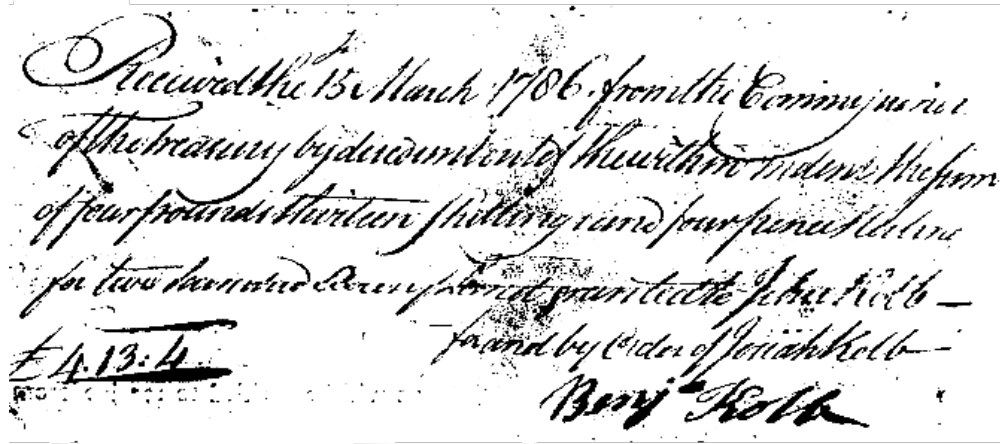 Received the 15 March 1786. from the Commissioners
of the treasury by discount out of the within indent the sum
of four pounds thirteen shillings and four pence Sterling
for two hundred granted to Jehu Kolb —
for and by Order of Josiah Kolb —
£ 4.13:4
Benja Kolb